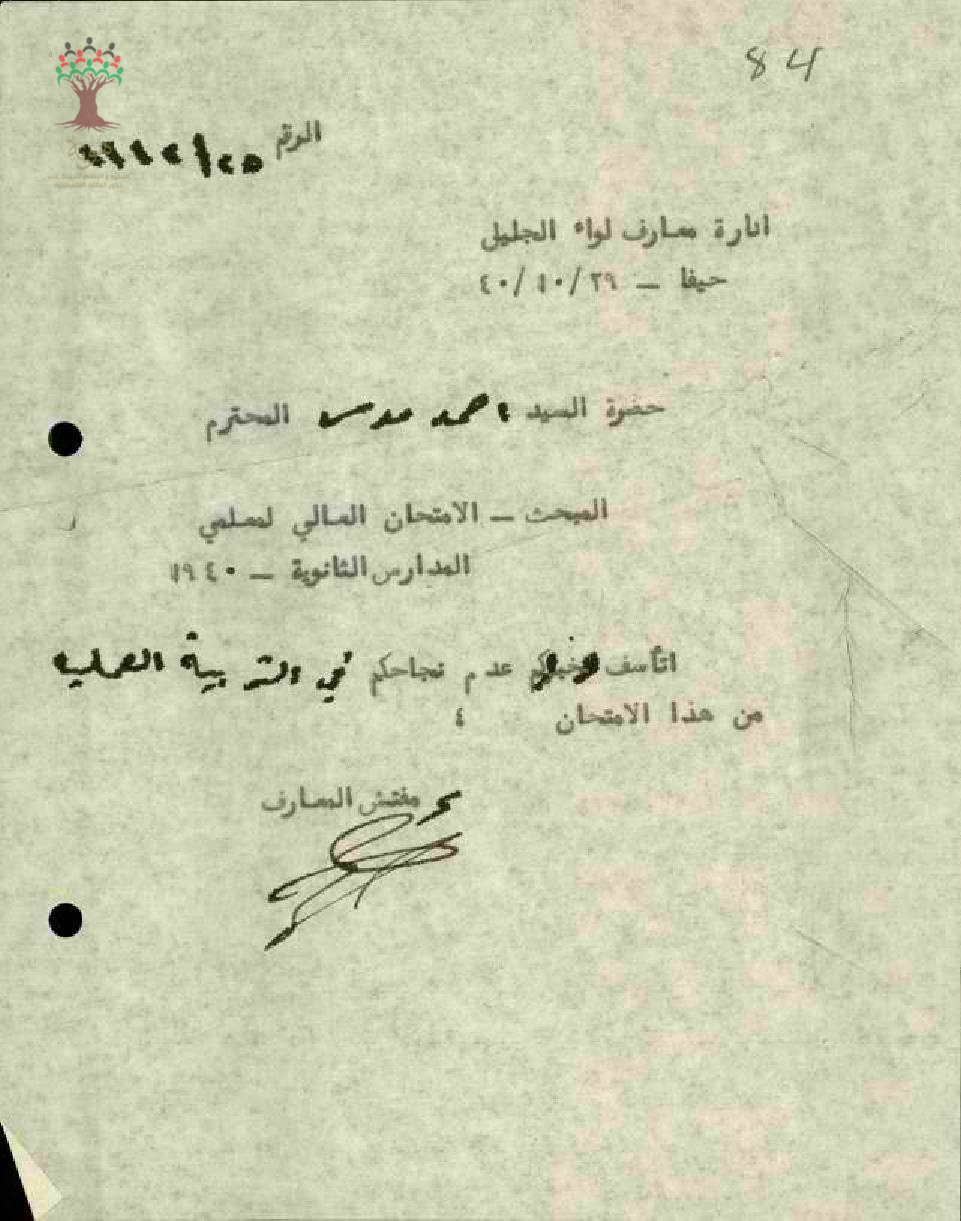 84
الرقم
ادارة معارف لواء الجليل
حيفا - ٢٩/ ١٠/ ٤٠
حضرة السيد احمد المحترم
المبحث - الامتحان العالي لمعلمي
المدارس الثانوية - ١٩٤٠
اتأسف لاخباركم عدم نجاحكم في التربية العملية
من هذا الامتحان ٤
مفتش المعارف